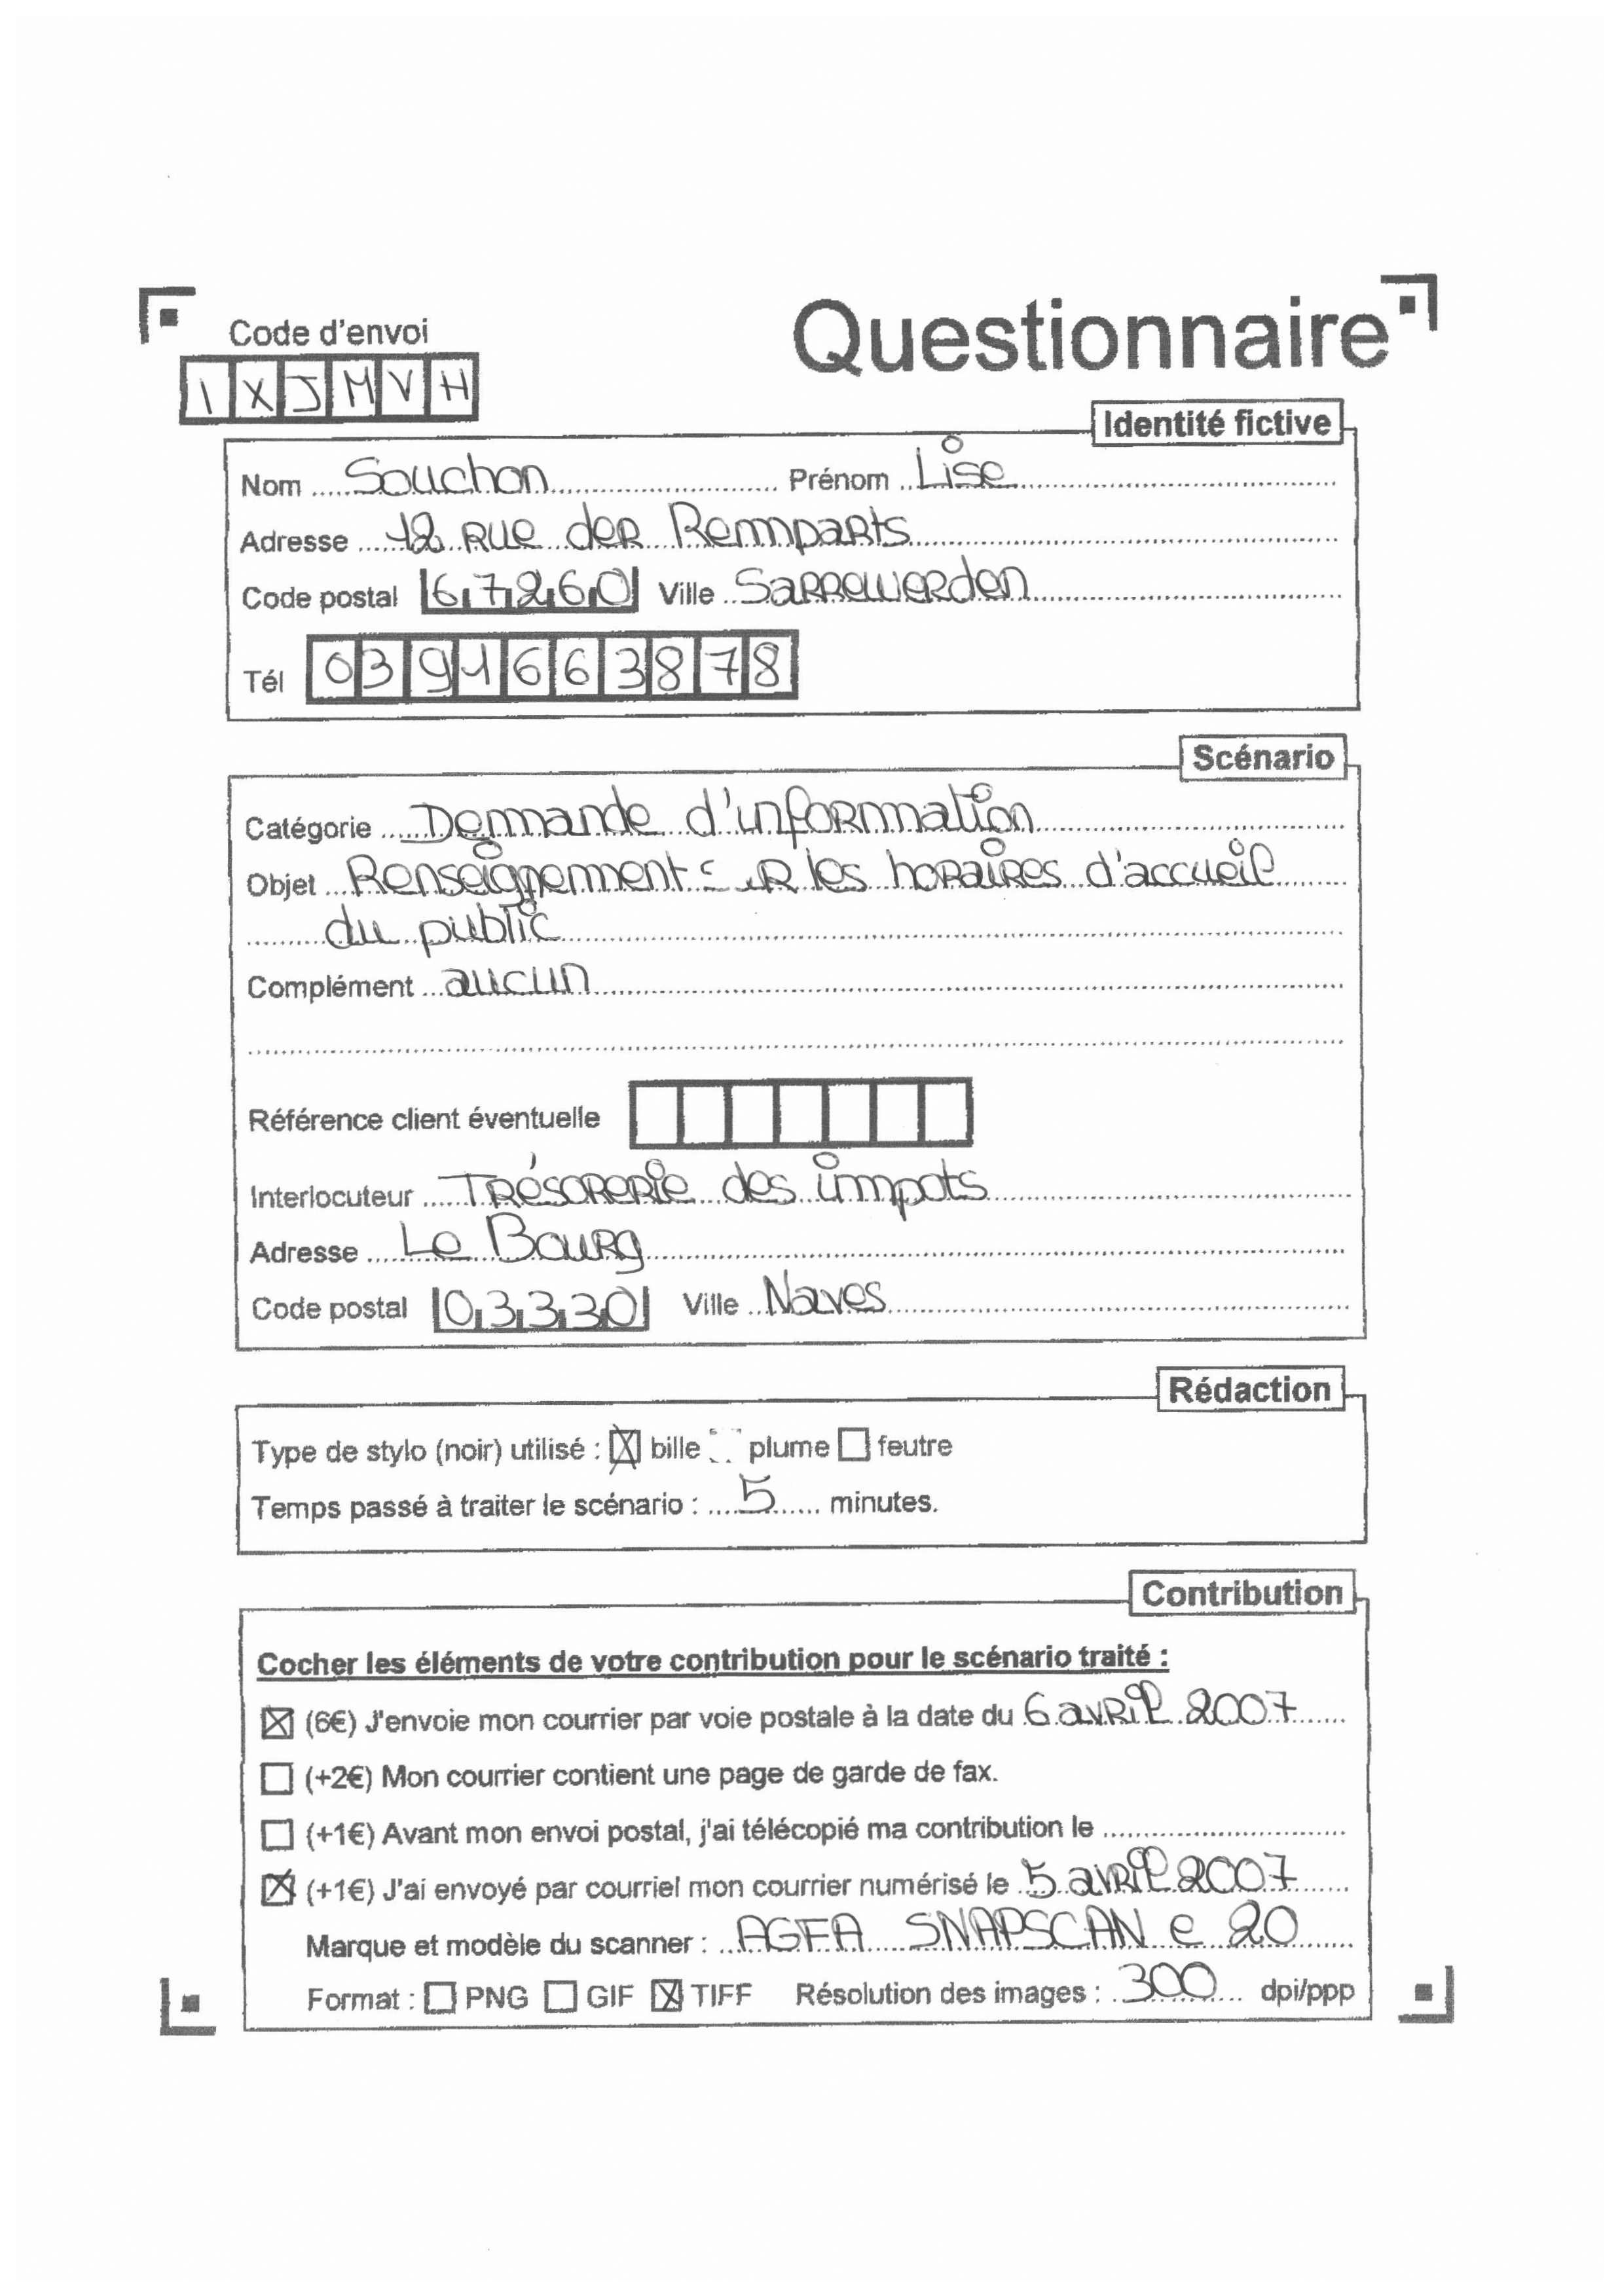 Code d'envoi
Questionnaire
I X J M V H
Identité fictive
Nom Souchon Prénom Lise
Adresse 12 Rue des Remparts
Code postal 67260 Ville Sarrewerden
Tél 03 94 66 38 78
Scénario
Catégorie Demande d'information
Objet Renseignement les horaires d'accueil
du public
Complément aucun
Référence client éventuelle
Interlocuteur Trésorerie des impots
Adresse Le Bourg
Code postal 03330 Ville Naves
Rédaction
Type de stylo (noir) utilisé : bille plume feutre
Temps passé à traiter le scénario : 5 minutes.
Contribution
Cocher les éléments de votre contribution pour le scénario traité :
(6€) J'envoie mon courrier par voie postale à la date du 6 avril 2007
(+2€) Mon courrier contient une page de garde de fax.
(+1€) Avant mon envoi postal, j'ai télécopié ma contribution le
(+1€) J'ai envoyé par courriel mon courrier numérisé le 5 avril 2007
Marque et modèle du scanner : AGFA SNAPSCAN e 20
Format : PNG GIF TIFF Résolution des images : 300 dpi/ppp